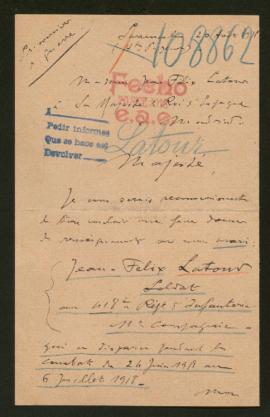 Prisonnier
de guerre
108862
Madame Jean Felix Latour
à Sa Majesté le Roi d'Espagne
Madrid
Fecho
e.a.e.
A
Pedir informes
Que se hace así
Devolver
Latour
Majesté,
Je vous serais reconnaissante
de bien vouloir me faire donner
des renseignements sur mon mari:
Jean-Felix Latour
Soldat
au 418e Régt d'Infanterie
11e Compagnie
qui a disparu pendant les
combats du 24 Juin 1918 au
6 Juillet 1918.